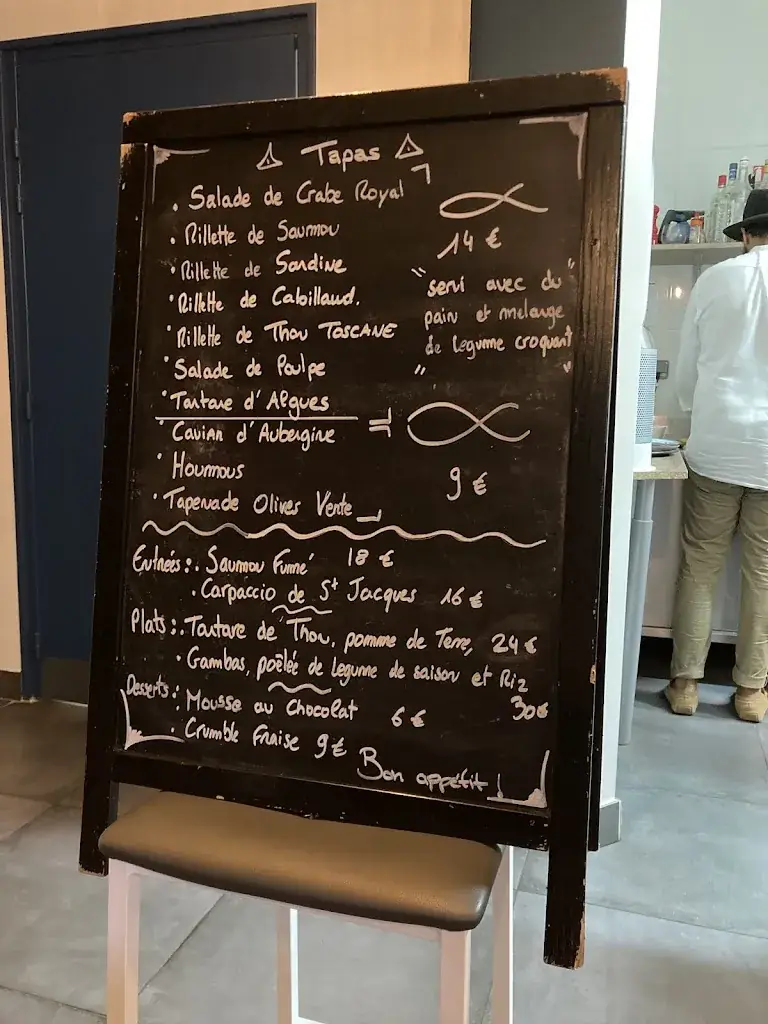 Tapas
• Salade de Crabe Royal
• Rillette de Saumou
14 €
• Rillette de Sardine
• Rillette de Cabillaud.
• Rillette de Thou TOSCANE
"servi avec du"
pain et mélange
de legume croquant
" "
• Salade de Poulpe
• Tartare d'Algues
• Caviar d'Aubergine
• Houmous
9 €
• Tapenade Olives Verte
Entrées : • Saumou Fumé 18 €
• Carpaccio de St Jacques 16 €
Plats : • Tartare de Thou, pomme de Terre, 24 €
• Gambas, poêlée de legume de saison et Riz
30€
Desserts : • Mousse au Chocolat 6 €
• Crumble Fraise 9 €
Bon appétit !